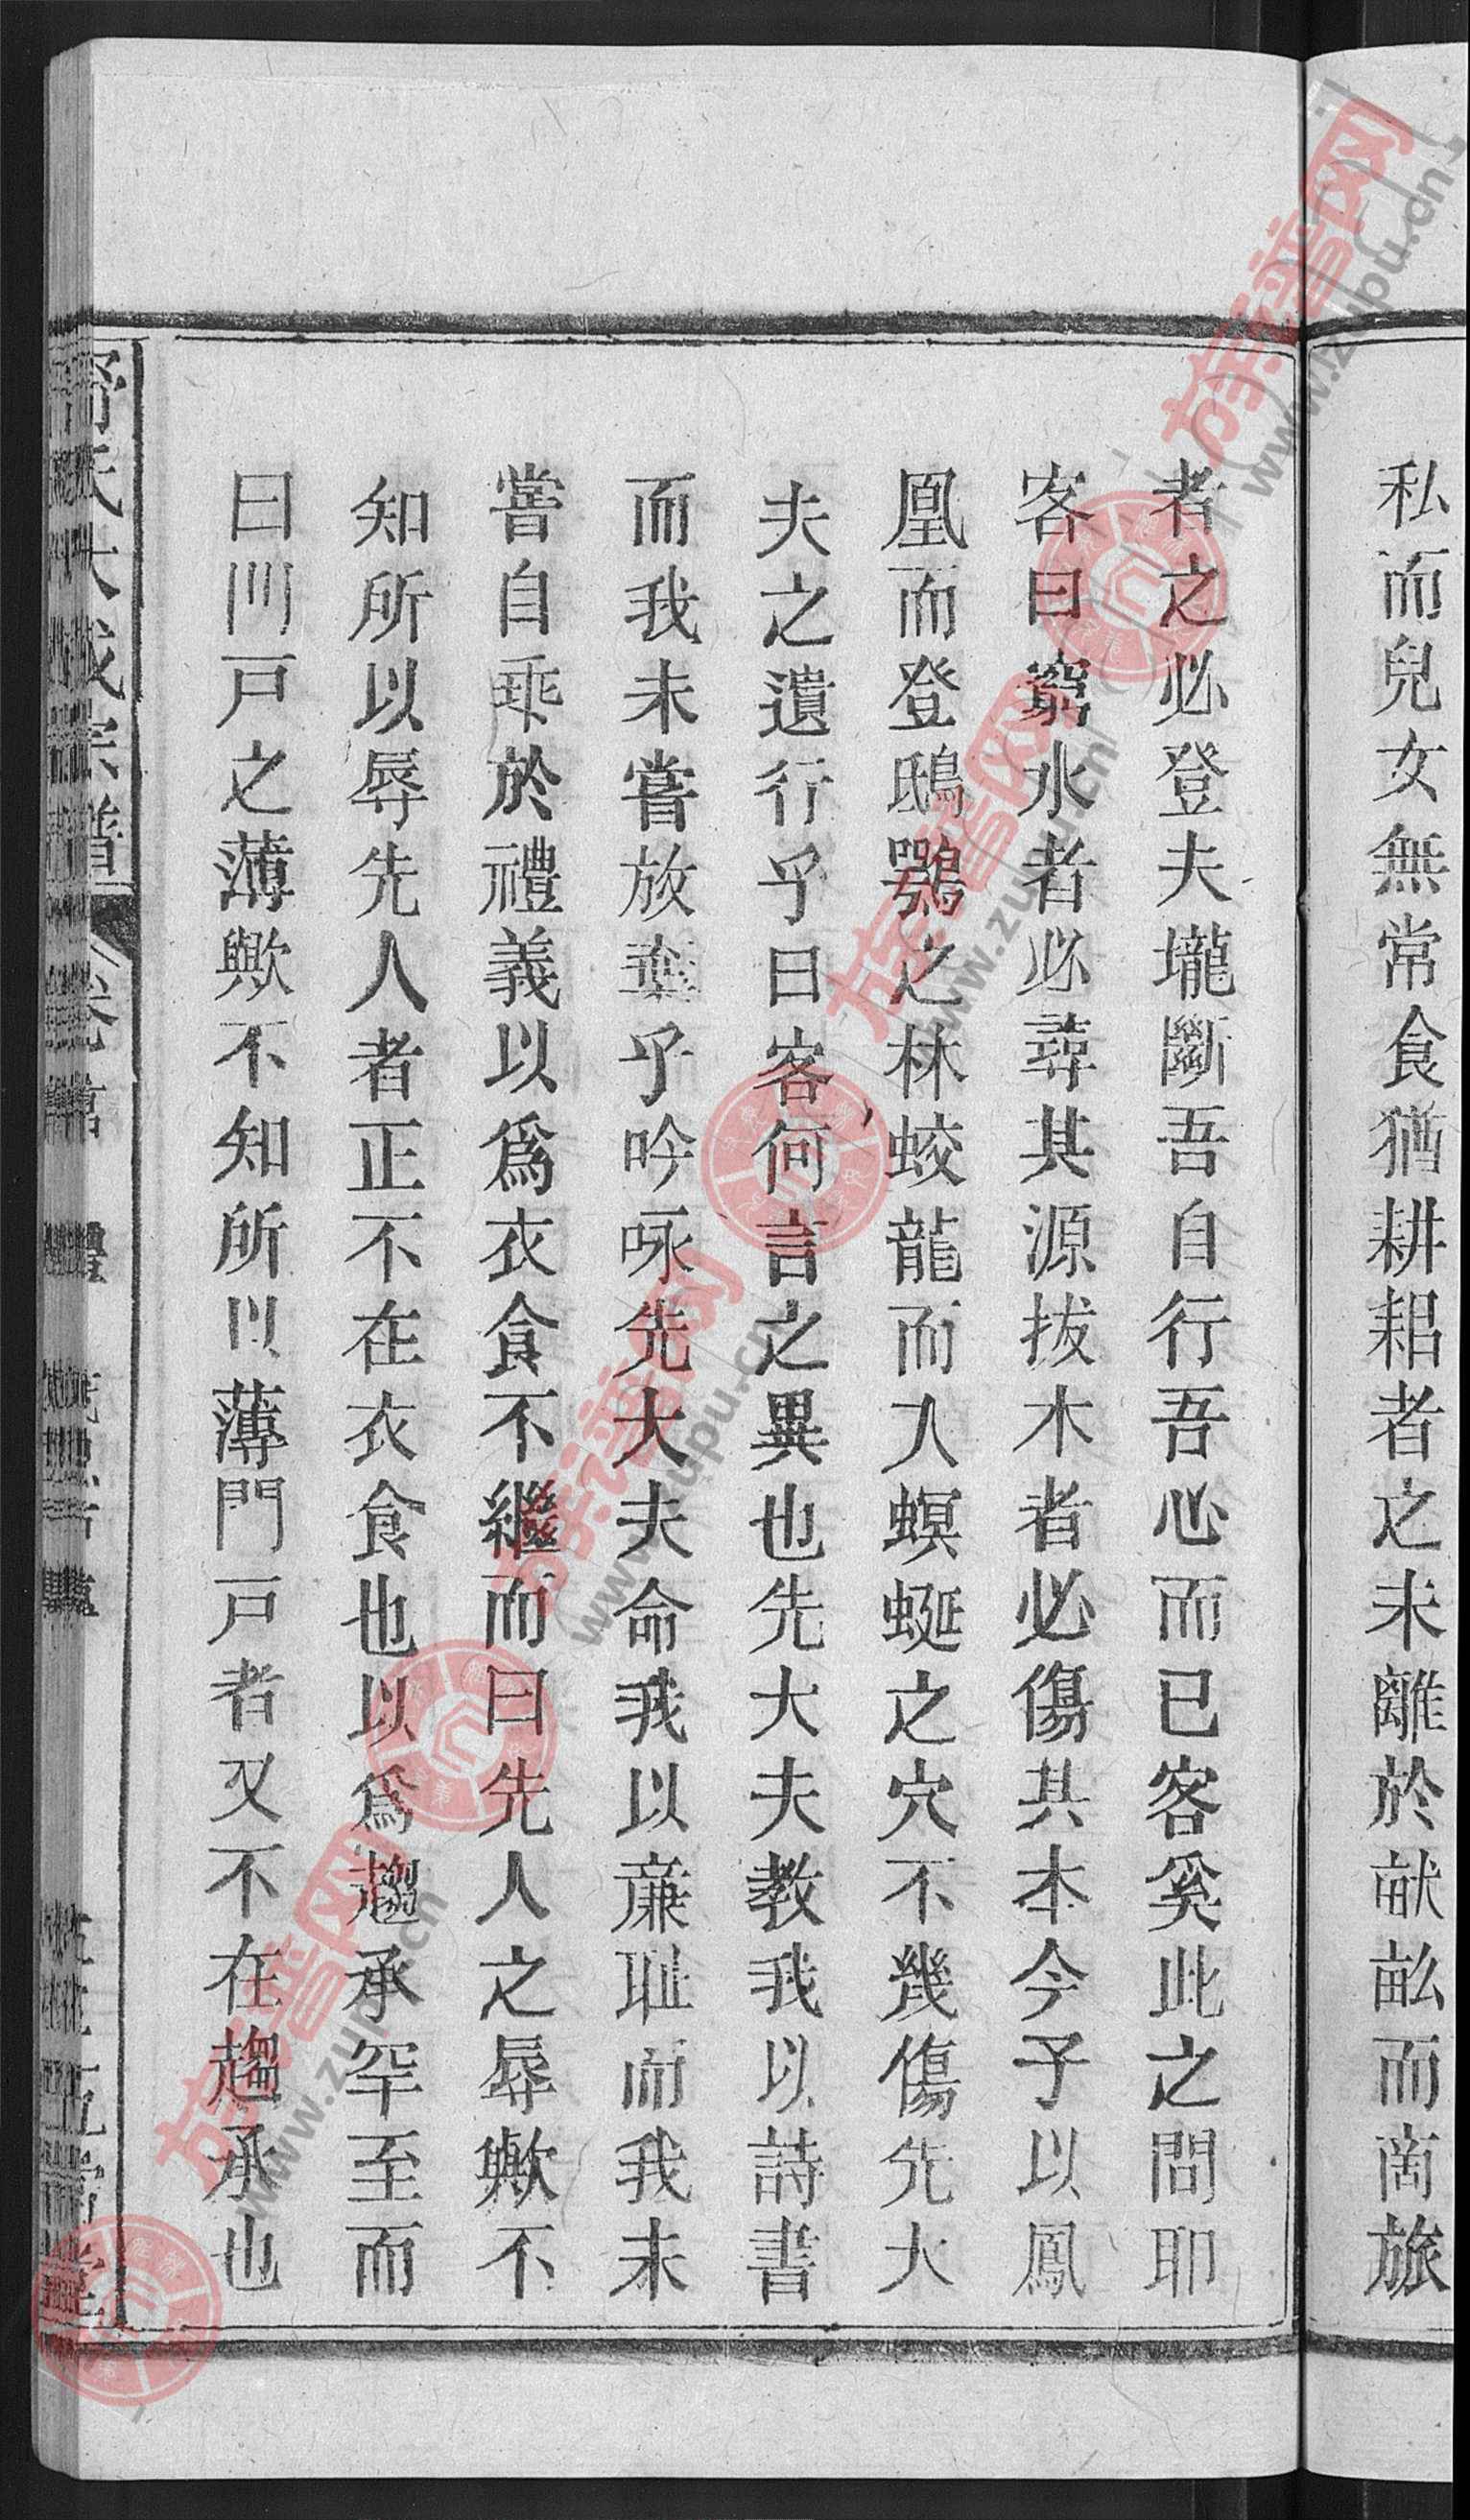 私而兒女無常食猶耕耜者之未離於畎畝而商旅
者之必登夫壠斷吾自行吾心而已客奚此之問耶
客曰窮水者必尋其源拔木者必傷其本今予以鳳
凰而登鴟鴞之林蛟龍而入螟蜒之穴不幾傷先大
夫之遺行乎曰客何言之異也先大夫教我以詩書
而我未嘗放棄乎吟咏先大夫命我以廉耻而我未
嘗自乖於禮義以爲衣食不繼而曰先人之辱歟不
知所以辱先人者正不在衣食也以爲趨承罕至而
曰門戸之薄歟不知所以薄門戸者又不在趨承也
氏大成宗譜 卷
族谱网
www.zupu.cn